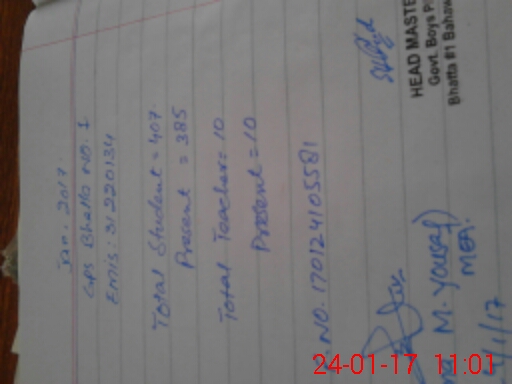 Jan. 2017.
GPS Bhatta No. 1
Emis: 31220134
Total Student = 407.
Present = 385
Total Teacher: 10
Present = 10
S.NO. 170124105581
HEAD MASTE
Govt. Boys P
Bhatta #1 Bahaw
M. Yousaf)
MEA.
/1/17
24-01-17 11:01